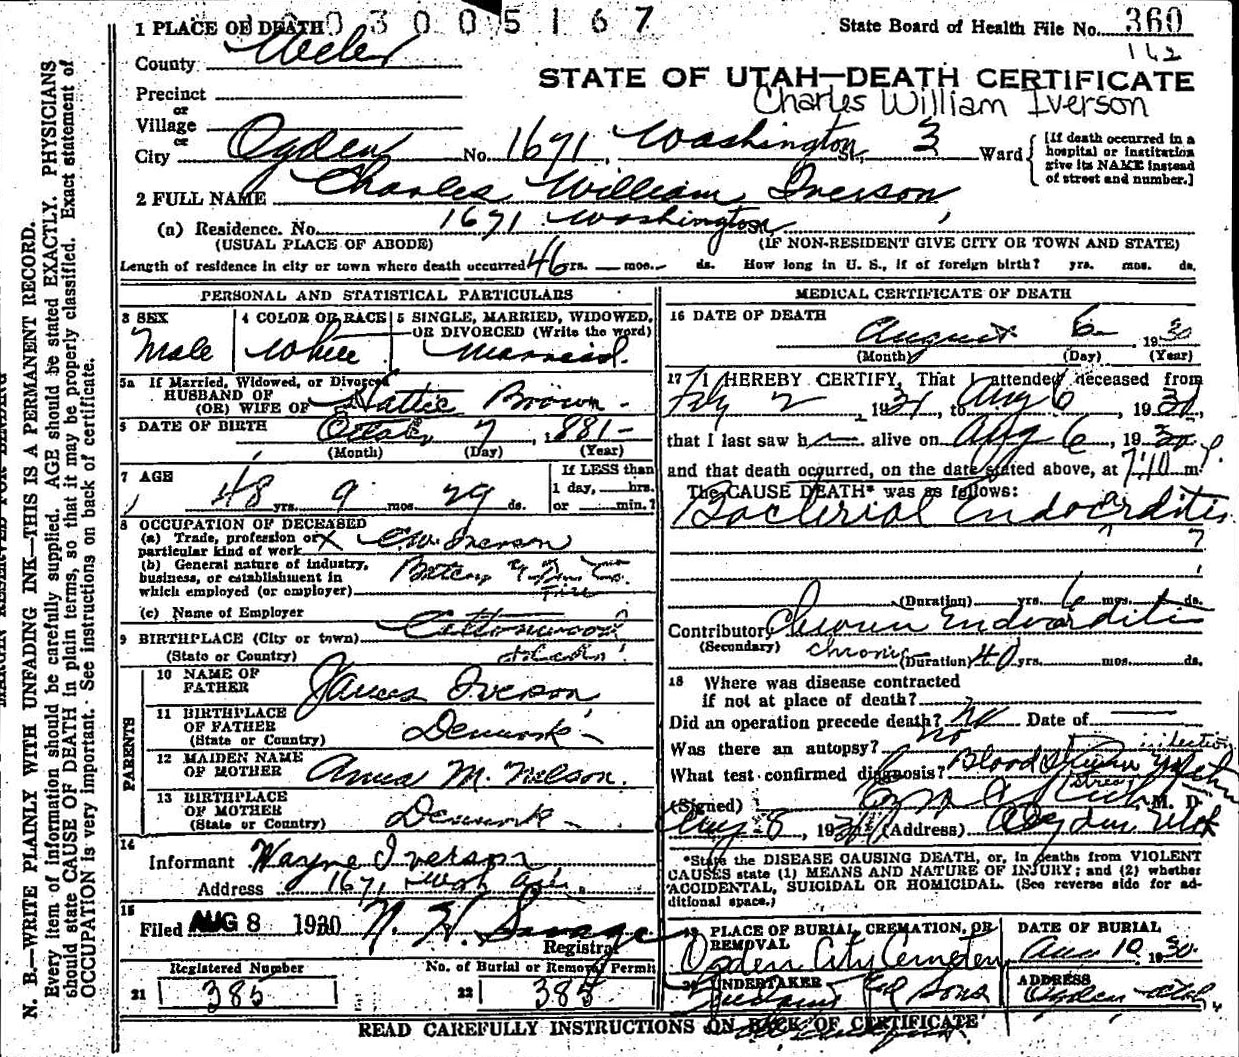 1 PLACE OF DEATH 0 3 0 0 5 1 6 7
State Board of Health File No. 360
162
County Weber
STATE OF UTAH—DEATH CERTIFICATE
Charles William Iverson
Precinct
or
Village
or
City Ogden No. 1671 Washington St. 3 Ward
[If death occurred in a hospital or institution give its NAME instead of street and number.]
2 FULL NAME Charles William Iverson
(a) Residence. No. 1671 Washington
(USUAL PLACE OF ABODE) (IF NON-RESIDENT GIVE CITY OR TOWN AND STATE)
Length of residence in city or town where death occurred 46 yrs. — mos. - ds. How long in U. S., if of foreign birth? yrs. mos. ds.
PERSONAL AND STATISTICAL PARTICULARS
3 SEX
Male
4 COLOR OR RACE
White
5 SINGLE, MARRIED, WIDOWED, OR DIVORCED (Write the word)
Married.
5a If Married, Widowed, or Divorced
HUSBAND OF
(OR) WIFE OF Hattie Brown -
6 DATE OF BIRTH October 7, 1881-
(Month) (Day) (Year)
7 AGE
48 yrs 9 mos 29 ds.
If LESS than
1 day, hrs.
or min.?
8 OCCUPATION OF DECEASED
(a) Trade, profession or
particular kind of work X C.W. Iverson
(b) General nature of industry,
business, or establishment in
which employed (or employer)
(c) Name of Employer
9 BIRTHPLACE (City or town) Cottonwood
(State or Country)
PARENTS
10 NAME OF
FATHER James Iverson
11 BIRTHPLACE
OF FATHER
(State or Country) Denmark -
12 MAIDEN NAME
OF MOTHER M. Nelson.
13 BIRTHPLACE
OF MOTHER
(State or Country) Denmark -
14
Informant Wayne Iverson
Address 1671 Wash Ave.
15
Filed AUG 8 1930 N. H. Savage
Registrar
Registered Number
21 385
No. of Burial or Removal Permit
22 385
MEDICAL CERTIFICATE OF DEATH
16 DATE OF DEATH
August 6 1930
(Month) (Day) (Year)
17 I HEREBY CERTIFY, That I attended deceased from
2, 193, to Aug 6, 1930,
that I last saw h alive on Aug 6, 1930
and that death occurred, on the date stated above, at 7:10 P m.
The CAUSE DEATH* was as follows:
Bacterial Endocarditis
(Duration) yrs. 6 mos. ds.
Contributory Chronic Endocarditis
(Secondary) chronic (Duration) 40 yrs. mos. ds.
18 Where was disease contracted
if not at place of death?
Did an operation precede death? No Date of
Was there an autopsy? No
What test confirmed diagnosis? Blood
(Signed) M. D.
Aug 8, 1930 (Address) Ogden Utah
*State the DISEASE CAUSING DEATH, or, in deaths from VIOLENT
CAUSES state (1) MEANS AND NATURE OF INJURY; and (2) whether
ACCIDENTAL, SUICIDAL OR HOMICIDAL. (See reverse side for ad-
ditional space.)
19 PLACE OF BURIAL, CREMATION, OR
REMOVAL
Ogden City Cemetery
DATE OF BURIAL
Aug 10 1930
20 UNDERTAKER
& Sons
ADDRESS
Ogden Utah
READ CAREFULLY INSTRUCTIONS ON BACK OF CERTIFICATE
N. B.—WRITE PLAINLY WITH UNFADING INK—THIS IS A PERMANENT RECORD.
Every item of information should be carefully supplied. AGE should be stated EXACTLY. PHYSICIANS
should state CAUSE OF DEATH in plain terms, so that it may be properly classified. Exact statement of
OCCUPATION is very important. See instructions on back of certificate.